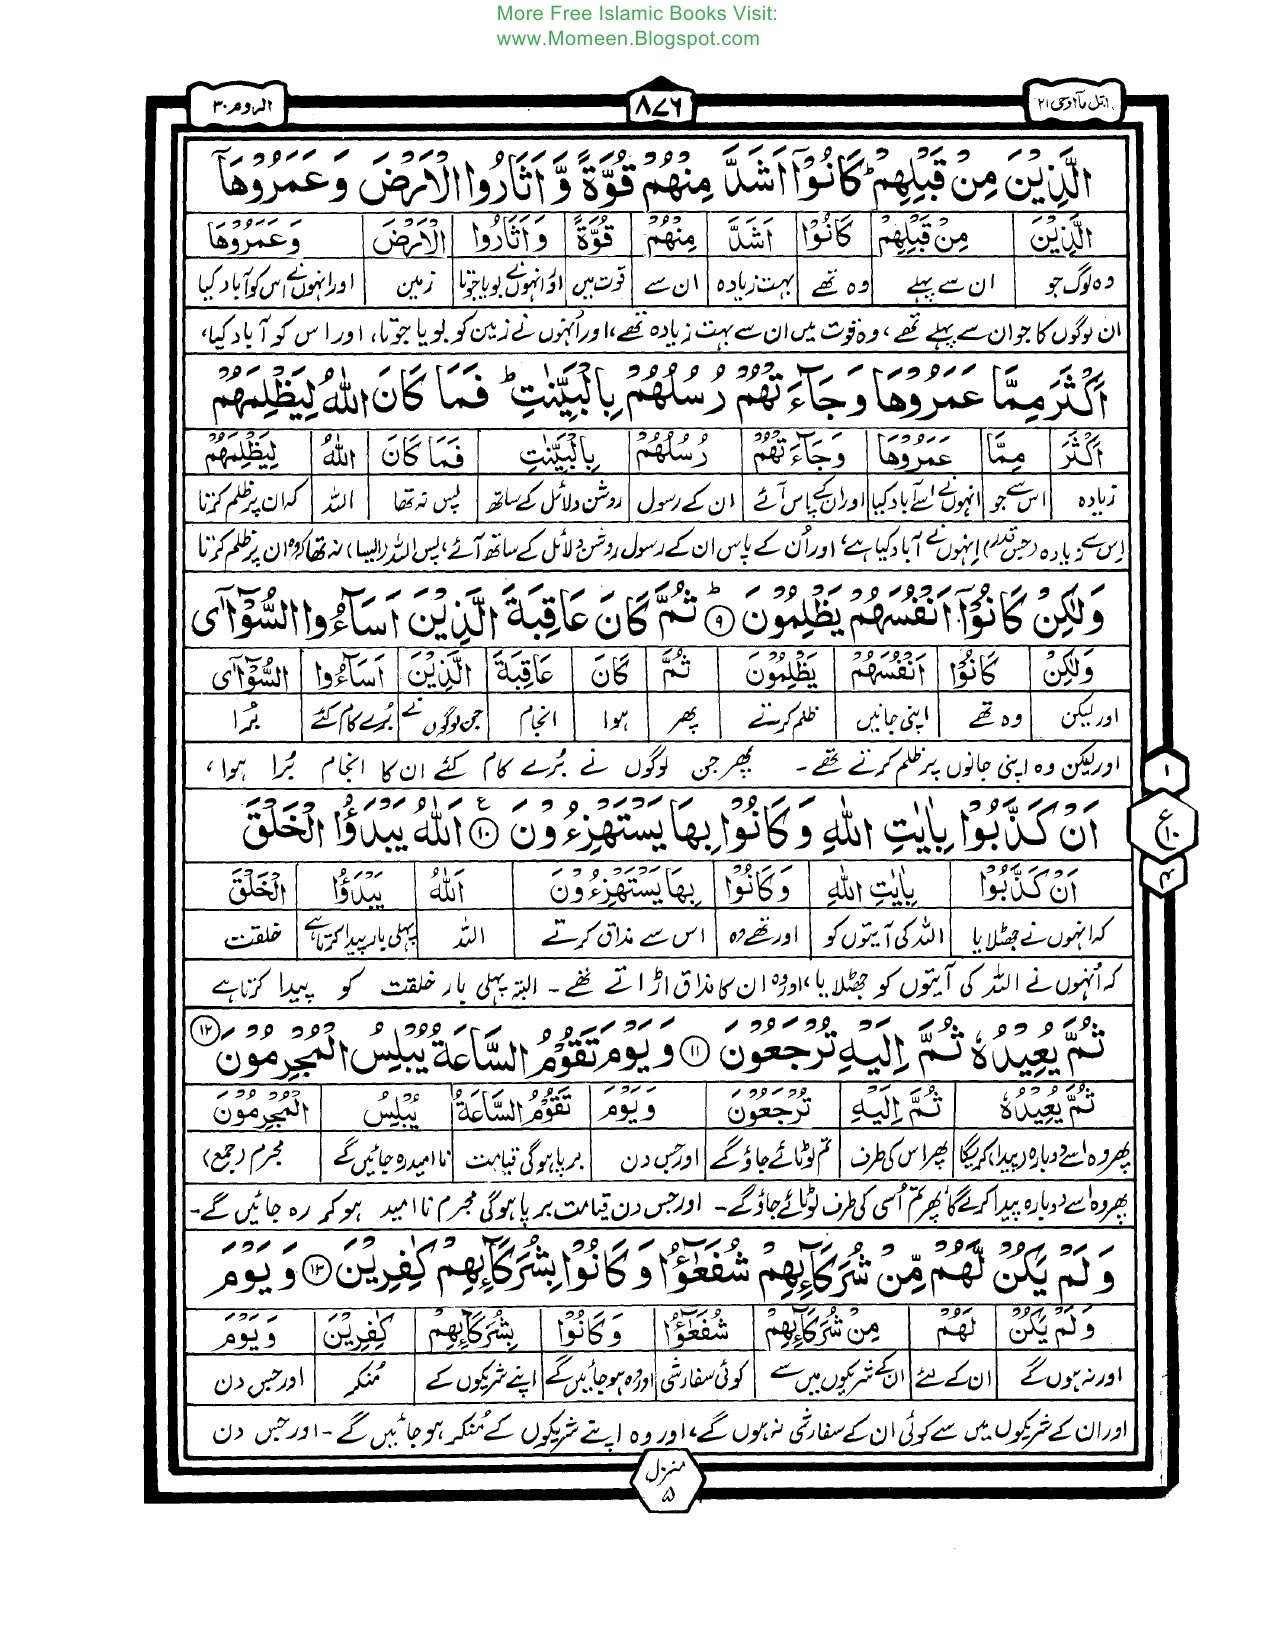 More Free Islamic Books Visit:
www.Momeen.Blogspot.com
اتل مآ اوحی ۲۱
۸۷۶
الروم ۳۰
الَّذِيْنَ مِنْ قَبْلِهِمْ ؕ كَانُوْۤا اَشَدَّ مِنْهُمْ قُوَّةً وَّ اَثَارُوا الْاَرْضَ وَ عَمَرُوْهَاۤ
الَّذِيْنَ مِنْ قَبْلِهِمْ كَانُوْۤا اَشَدَّ مِنْهُمْ قُوَّةً وَ اَثَارُوا الْاَرْضَ وَ عَمَرُوْهَا
وہ لوگ جو ان سے پہلے وہ تھے بہت زیادہ ان سے قوت میں اور انہوں نے بویا جوتا زمین اور انہوں نے اس کو آباد کیا
ان لوگوں کا جو ان سے پہلے تھے، وہ قوت میں ان سے بہت زیادہ تھے، اور اُنہوں نے زمین کو بویا جوتا، اور اس کو آباد کیا،
اَكْثَرَ مِمَّا عَمَرُوْهَا وَ جَآءَتْهُمْ رُسُلُهُمْ بِالْبَيِّنٰتِ ؕ فَمَا كَانَ اللّٰهُ لِيَظْلِمَهُمْ
اَكْثَرَ مِمَّا عَمَرُوْهَا وَ جَآءَتْهُمْ رُسُلُهُمْ بِالْبَيِّنٰتِ فَمَا كَانَ اللّٰهُ لِيَظْلِمَهُمْ
زیادہ اس سے جو انہوں نے اسے آباد کیا اور ان کے پاس آئے ان کے رسول روشن دلائل کے ساتھ پس نہ تھا اللہ کہ ان پر ظلم کرتا
اِس سے زیادہ (جس قدر) اِنہوں نے آباد کیا ہے، اور اُن کے پاس ان کے رسول روشن دلائل کے ساتھ آئے، پس اللہ (ایسا) نہ تھا کہ وہ ان پر ظلم کرتا
وَلٰكِنْ كَانُوْۤا اَنْفُسَهُمْ يَظْلِمُوْنَ ؕ ۹ ثُمَّ كَانَ عَاقِبَةَ الَّذِيْنَ اَسَآءُوا السُّوْٓاٰۤى
وَلٰكِنْ كَانُوْۤا اَنْفُسَهُمْ يَظْلِمُوْنَ ثُمَّ كَانَ عَاقِبَةَ الَّذِيْنَ اَسَآءُوا السُّوْٓاٰۤى
اور لیکن وہ تھے اپنی جانیں ظلم کرتے پھر ہوا انجام جن لوگوں نے بُرے کام کئے بُرا
اور لیکن وہ اپنی جانوں پر ظلم کرتے تھے۔ پھر جن لوگوں نے بُرے کام کئے ان کا انجام بُرا ہوا،
۱
ع
۱۰
۴
اَنْ كَذَّبُوْا بِاٰيٰتِ اللّٰهِ وَ كَانُوْا بِهَا يَسْتَهْزِءُوْنَ ع ۱۰ اَللّٰهُ يَبْدَؤُا الْخَلْقَ
اَنْ كَذَّبُوْا بِاٰيٰتِ اللّٰهِ وَ كَانُوْا بِهَا يَسْتَهْزِءُوْنَ اَللّٰهُ يَبْدَؤُا الْخَلْقَ
کہ انہوں نے جھٹلایا اللہ کی آیتوں کو اور تھے وہ اس سے مذاق کرتے اللہ پہلی بار پیدا کرتا ہے خلقت
کہ اُنہوں نے اللہ کی آیتوں کو جھٹلایا، اور وہ ان کا مذاق اڑاتے تھے۔ اللہ پہلی بار خلقت کو پیدا کرتا ہے
ثُمَّ يُعِيْدُهٗ ثُمَّ اِلَيْهِ تُرْجَعُوْنَ ۱۱ وَ يَوْمَ تَقُوْمُ السَّاعَةُ يُبْلِسُ الْمُجْرِمُوْنَ ۱۲
ثُمَّ يُعِيْدُهٗ ثُمَّ اِلَيْهِ تُرْجَعُوْنَ وَ يَوْمَ تَقُوْمُ السَّاعَةُ يُبْلِسُ الْمُجْرِمُوْنَ
پھر وہ اسے دوبارہ (پیدا) کریگا پھر اس کی طرف تم لوٹائے جاؤ گے اور جس دن برپا ہوگی قیامت ناامید رہ جائیں گے مجرم (جمع)
پھر وہ اسے دوبارہ پیدا کرے گا، پھر تم اُسی کی طرف لوٹائے جاؤ گے۔ اور جس دن قیامت برپا ہوگی مجرم ناامید ہو کر رہ جائیں گے۔
وَ لَمْ يَكُنْ لَّهُمْ مِّنْ شُرَكَآئِهِمْ شُفَعٰٓؤُا وَ كَانُوْا بِشُرَكَآئِهِمْ كٰفِرِيْنَ ۱۳ وَ يَوْمَ
وَ لَمْ يَكُنْ لَهُمْ مِنْ شُرَكَآئِهِمْ شُفَعٰٓؤُا وَ كَانُوْا بِشُرَكَآئِهِمْ كٰفِرِيْنَ وَ يَوْمَ
اور نہ ہوں گے ان کے لئے ان کے شریکوں میں سے کوئی سفارشی اور وہ ہو جائیں گے اپنے شریکوں کے مُنکر اور جس دن
اور ان کے شریکوں میں سے کوئی ان کے سفارشی نہ ہوں گے، اور وہ اپنے شریکوں کے مُنکر ہو جائیں گے۔ اور جس دن
منزل
۵